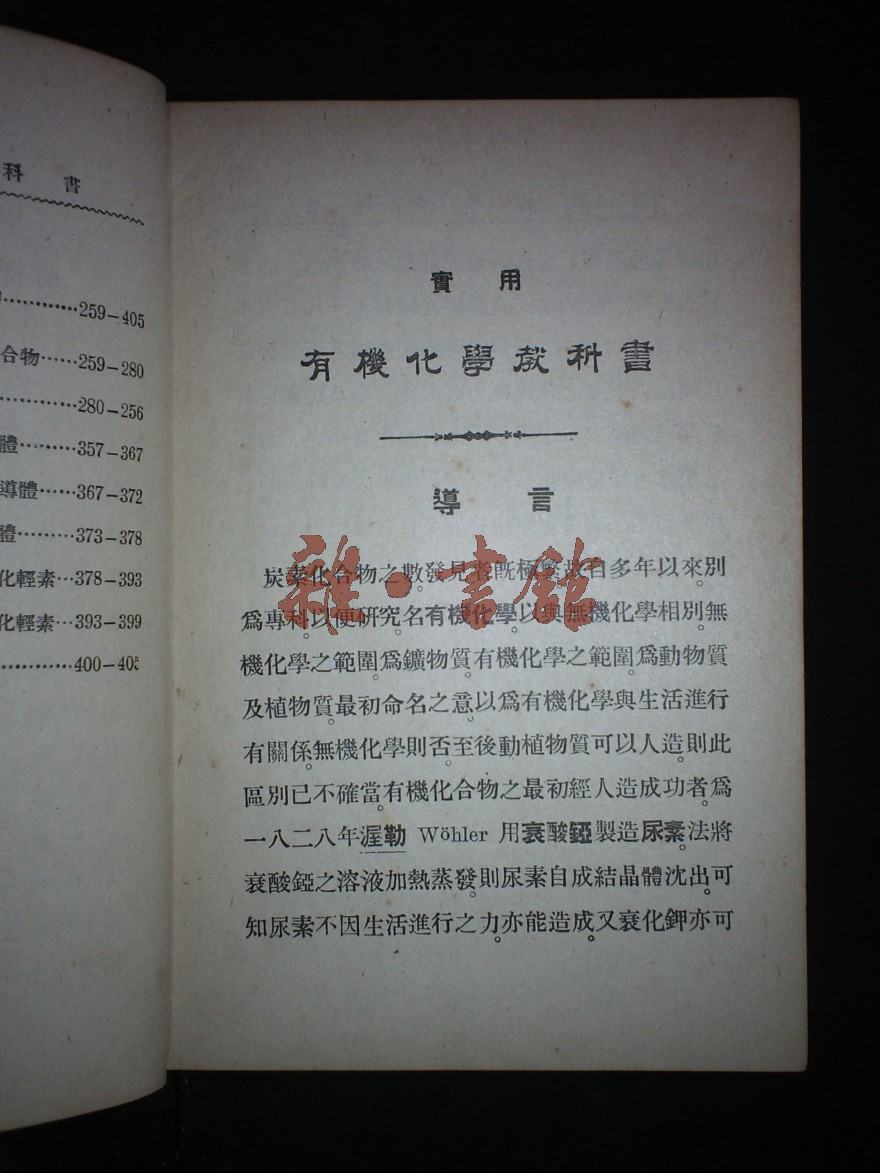 科 書
⋯⋯⋯⋯259—405
合物⋯⋯259—280
⋯⋯⋯⋯280—256
體⋯⋯⋯357—367
導體⋯⋯367—372
體⋯⋯⋯373—378
化輕素⋯378—393
化輕素⋯393—399
⋯⋯⋯⋯400—405
實 用
有機化學敎科書
導 言
炭素化合物之數。發見者旣極繁。故自多年以來。別
爲專科。以便研究。名有機化學。以與無機化學相別。無
機化學之範圍。爲鑛物質。有機化學之範圍。爲動物質
及植物質。最初命名之意。以爲有機化學與生活進行
有關係。無機化學則否。至後動植物質可以人造。則此
區別已不確當。有機化合物之最初經人造成功者。爲
一八二八年渥勒 Wöhler 用衰酸錏製造尿素。法將
衰酸錏之溶液加熱蒸發。則尿素自成結晶體沈出。可
知尿素不因生活進行之力。亦能造成。又衰化鉀亦可
雜·書館